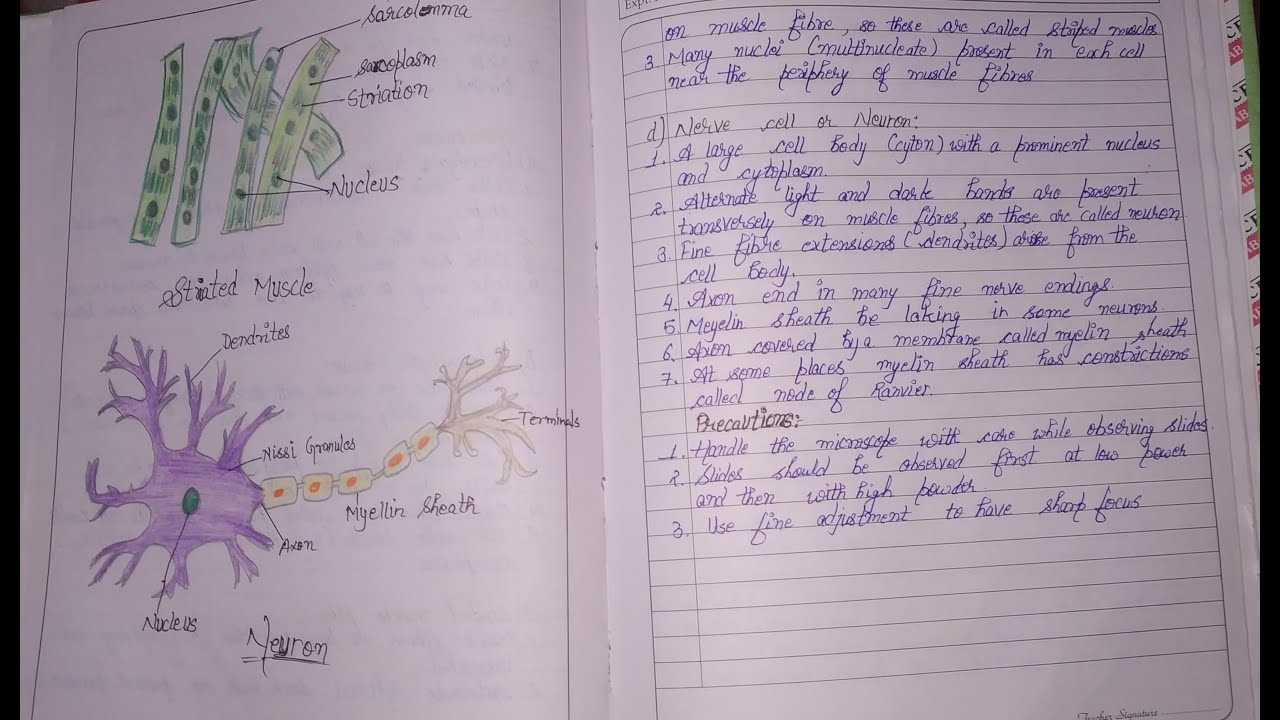 Sarcolemma
Sarcoplasm
Striation
Nucleus
Striated Muscle
Dendrites
Nissi Granules
Terminals
Myellin Sheath
Axon
Nucleus
Neuron
Expt.
on muscle fibre, so these are called striped muscles
3 Many nuclei (multinucleate) present in each cell
near the periphery of muscle fibres
d) Nerve cell or Neuron:
1. A large cell Body (cyton) with a prominent nucleus
and cytoplasm.
2. Alternate light and dark bands are present
transversely on muscle fibres, so these are called neuron.
3. Fine fibre extensions (dendrites) arise from the
cell Body.
4. Axon end in many fine nerve endings.
5 Meyelin sheath be laking in some neurons.
6. Axon covered by a membrane called myelin sheath
7. At some places myelin sheath has constrictions
called node of Ranvier.
Precautions:
1. Handle the microscope with care while observing slides.
2. Slides should be observed first at low power
and then with high powder.
3. Use fine adjustment to have sharp focus
Teacher Signature